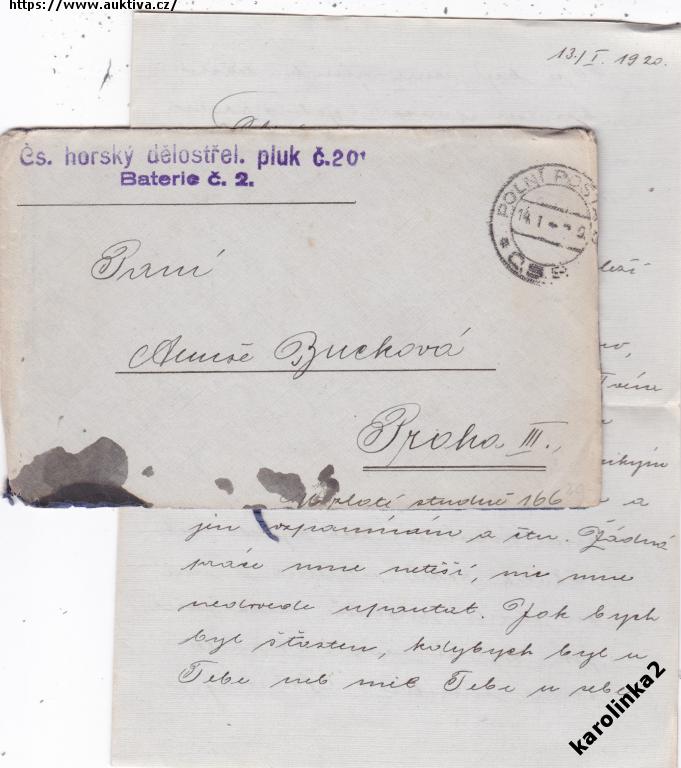 https://www.auktiva.cz/
13./I. 1920.
Čs. horský dělostřel. pluk č.201
Baterie č. 2.
POLNÍ POŠTA
14.I
Č.S.P.
Paní
Bucková
Praha III.,
zlaté studně 166
a
jen vzpomínám a čtu. Žádná
práce mne netěší, nic mne
nedovede upoutat. Jak bych
byl šťasten, kdybych byl u
Tebe neb měl Tebe u sebe
karolinka2